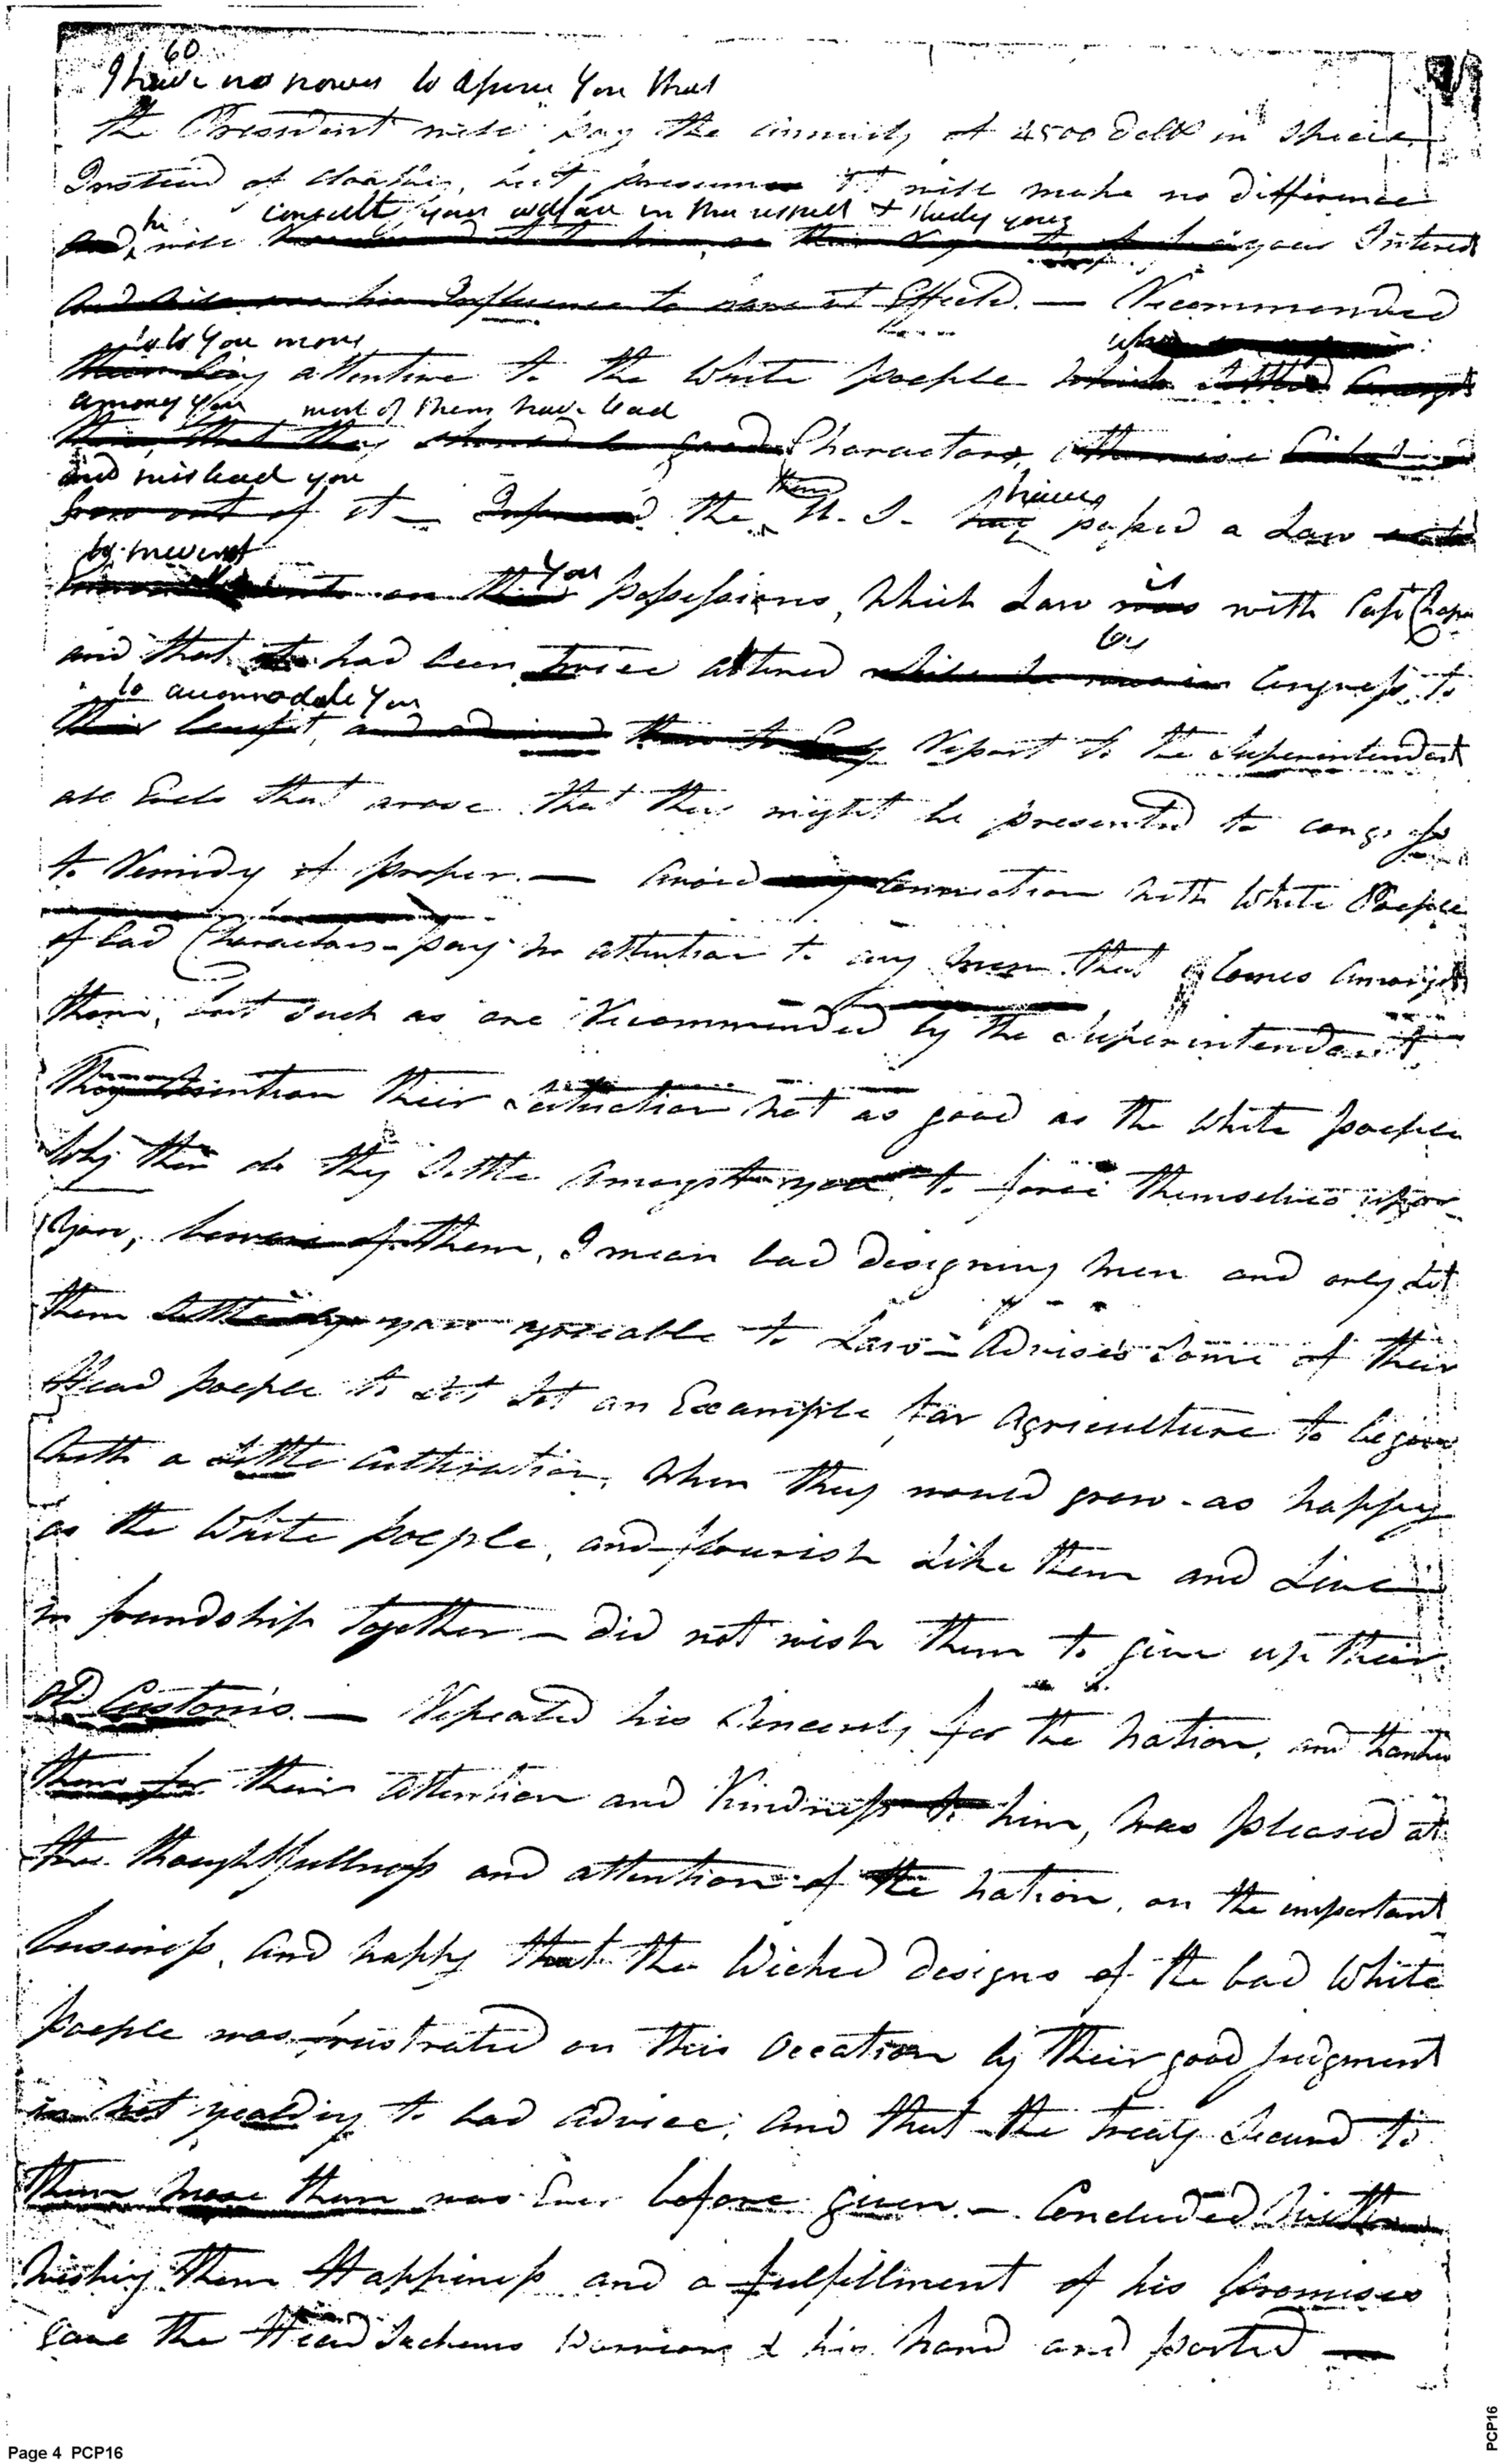 60
I have no power to assure you that
the President will pay the annuity of 4500 dolls in Specie
Instead of cloathing, but presume it will make no difference
he consult your welfare in this respect & study your
and, will your Interest
and his Influence to have it Effected. — Recommended
to you more who
attentive to the White people which settled amongst
among you most of them have bad
them, that they should be good Characters, otherwise
and mislead you
out of it — Informed the U. S. has passed a Law
them have
to prevent
on their you possessions, Which Law was with Capt Chapin
is
and that had been twice altered while he was in Congress to
by
to accomodate you
their benefit, and advised them to Report to the Superintendant
all Evils that arose that they might be presented to congress
to Remidy if proper. — Avoid any Connection with White People
of bad Characters — pay no attention to any men that Comes Amongst
them, but such as are Recommended by the Superintendant,
they mention their Situation not as good as the White people
Why then do they Settle Amongst you, to force themselves upon
you, beware of them, I mean bad designing men and only let
them Settle by you agreeable to Law — Advised some of their
Head people to set an Example for Agriculture to begin
with a little cultivation, When they would grow as happy
as the White people, and flourish Like them and Live
in friendship together — did not wish them to give up their
old Customs. — Repeated his Sincerity for the Nation, and thanked
them for their attention and Kindness to him, was pleased at
the thoughtfullness and attention of the Nation, on the important
business, and happy that the Wicked designs of the bad White
people was frustrated on this Occation by their good Judgment
in not yealding to bad advice; and that the treaty Secured to
them more than was Ever before given. — Concluded with
wishing them Happiness and a fulfillment of his promises
Gave the Head Sachems Warriors & his hand and parted —
Page 4 PCP16
PCP16